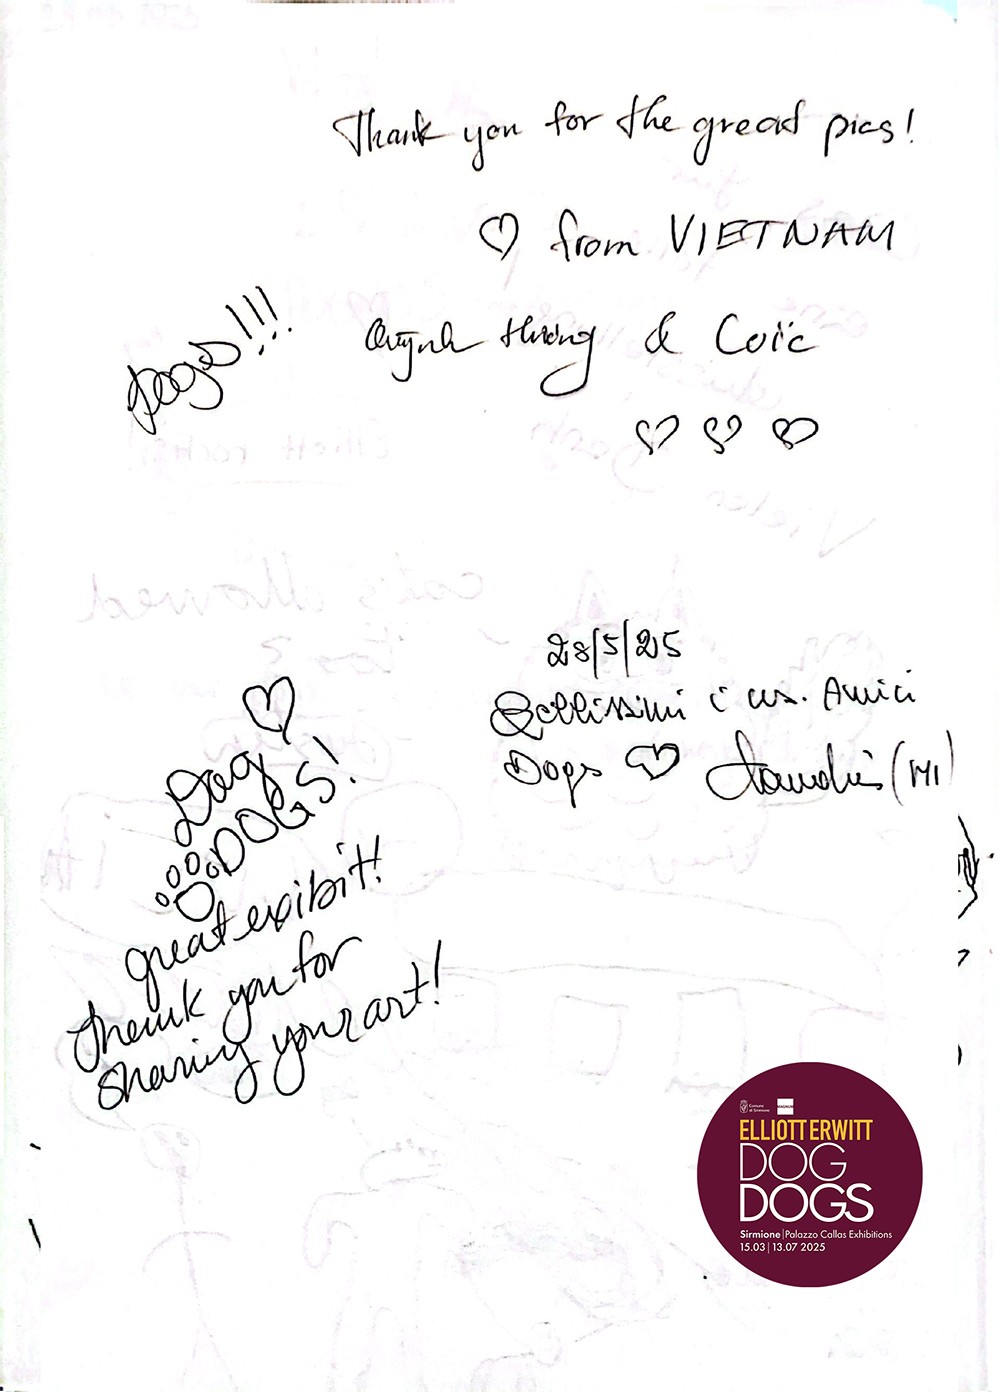 Thank you for the great pics!
♡ from VIETNAM
Quỳnh Hương & Coïc
Dogs!!!
28/5/25
Bellissimi i ns. Amici
Dogs ♡ (MI)
Dog
DOGS!
great exibit!
thank you for
sharing your art!
Comune
di Sirmione
MAGNUM
ELLIOTT ERWITT
DOG
DOGS
Sirmione | Palazzo Callas Exhibitions
15.03 | 13.07 2025